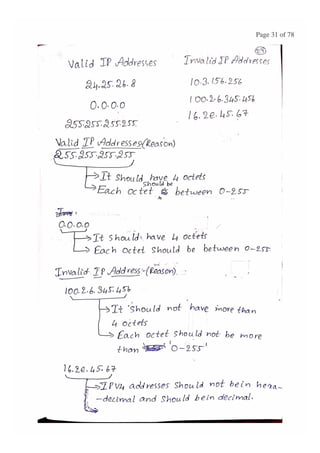 Page 31 of 78
Valid IP Addresses
Invalid IP Addresses
24.25.26.8
10.3.156.256
0.0.0.0
100.2.6.345.456
255.255.255.255
16.2e.45.67
Valid IP Addresses(Reason)
255.255.255.255
It should have 4 octets
Each octet should be between 0-255
0.0.0.0
It should have 4 octets
Each octet should be between 0-255
Invalid IP Address:-(Reason)
100.2.6.345.456
It should not have more than
4 octets
Each octet should not be more
than '0-255'
16.2e.45.67
IPV4 addresses should not be in hexa-
-decimal and should be in decimal.